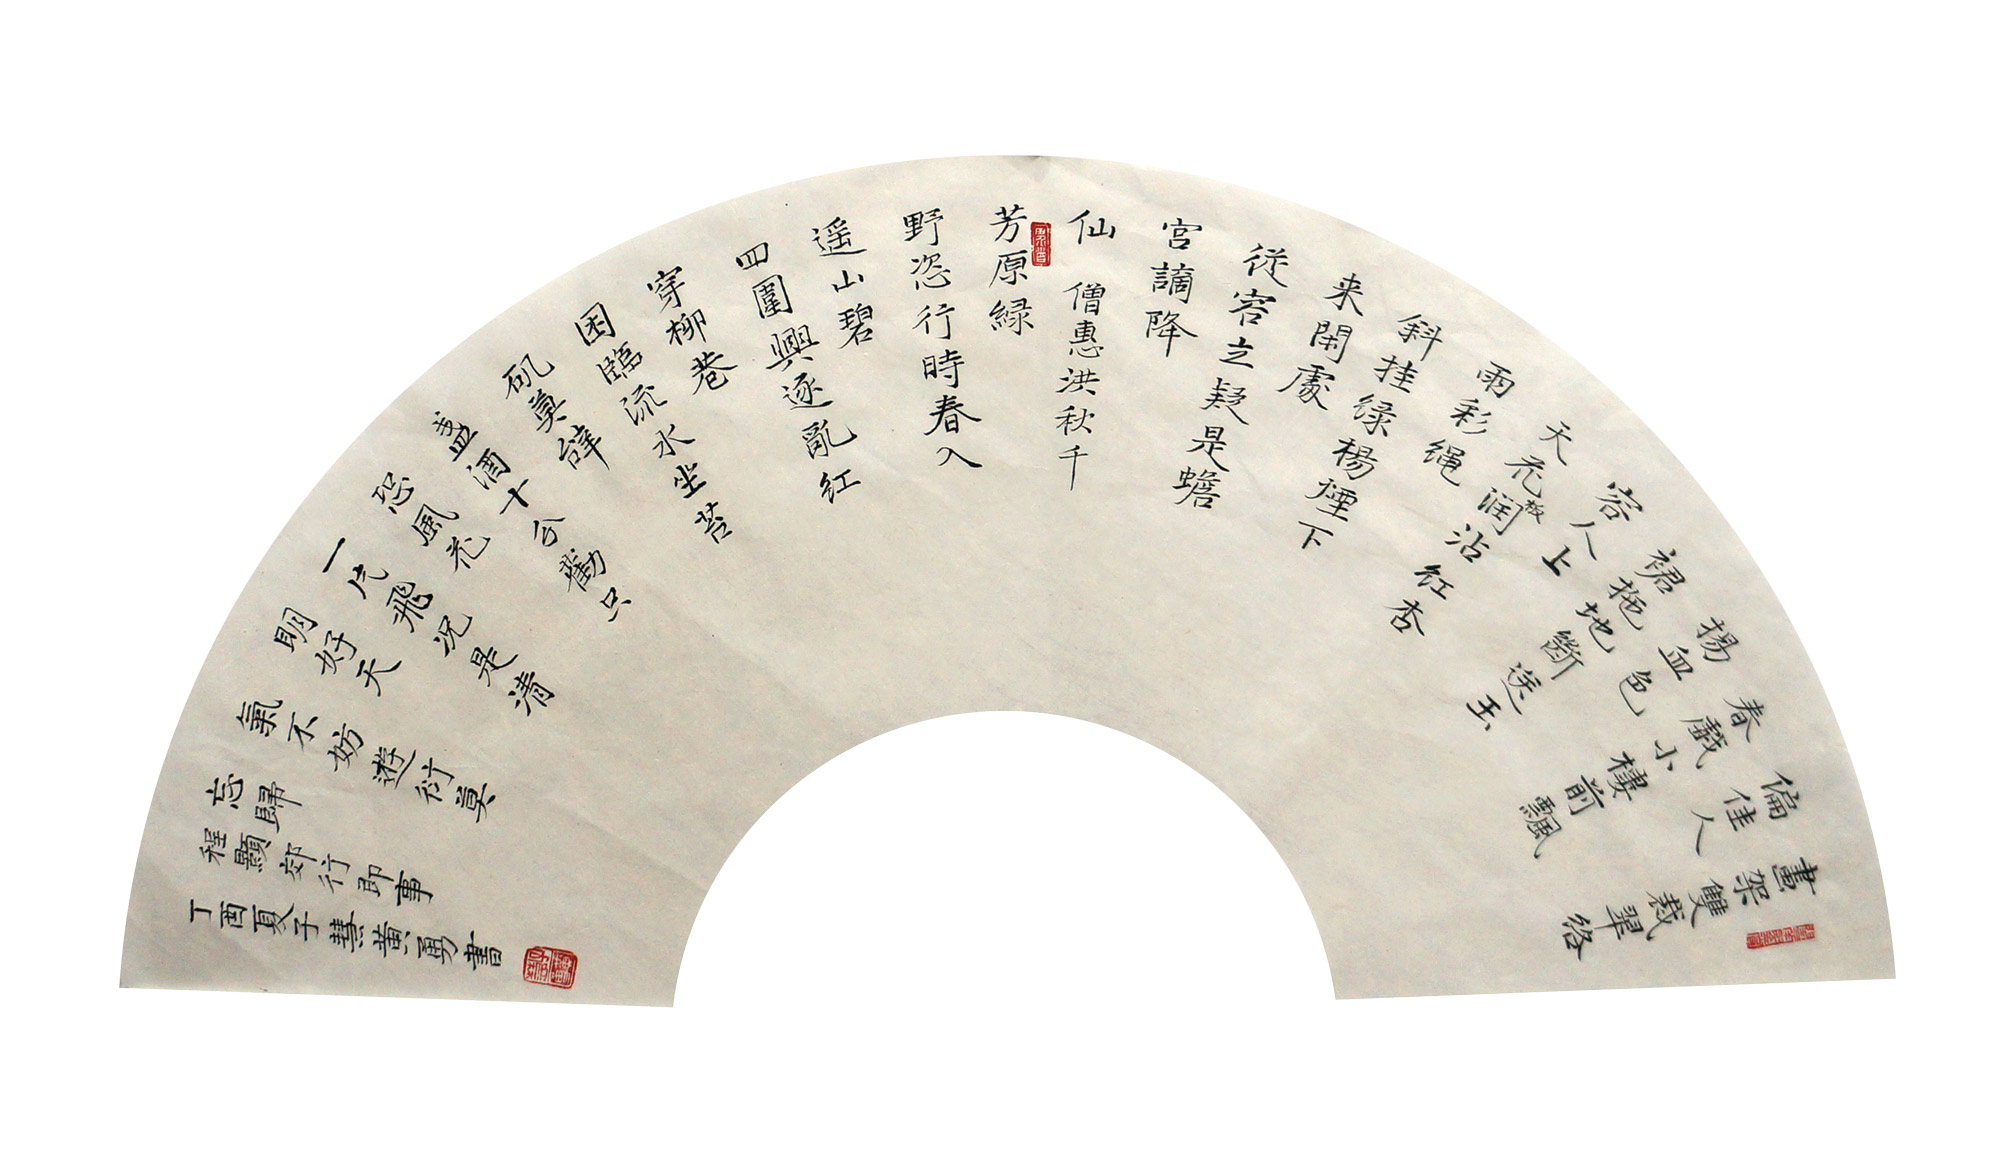 畫架雙裁翠络
偏佳人
春戲小樓前飄
揚血色
裙拖地斷送玉
容人上
天花板润沾红杏
雨彩绳
斜挂绿楊煙下
来閒處
從容立疑是蟾
宫謫降
仙 僧惠洪秋千
芳原緑
野恣行時春入
遥山碧
四圍興逐亂红
穿柳巷
困臨流水坐苔
矶莫辭
盞酒十分勸只
恐風花
一片飛况是清
明好天
氣不妨遊衍莫
忘歸
程顥郊行即事
丁酉夏子慧黄勇書